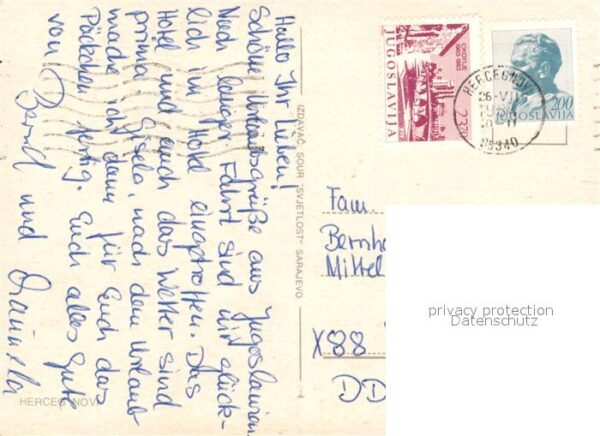 Hallo Ihr Lieben!
Schöne Urlaubsgrüße aus Jugoslawien.
Nach langer Fahrt sind wir glück-
lich im Hotel eingetroffen. Das
Hotel und auch das Wetter sind
prima. Gisela, nach dem Urlaub
mache ich dann für Euch das
Päckchen fertig. Euch alles Gute
von Bernd und
HERCEG NOVI
IZDAVAČ, SOUR "SVJETLOST" SARAJEVO
JUGOSLAVIJA
2.00
JUGOSLAVIJA
HERCEGNOVI
Fam.
Bernha
Mittel
X88
DD
privacy protection
Datenschutz